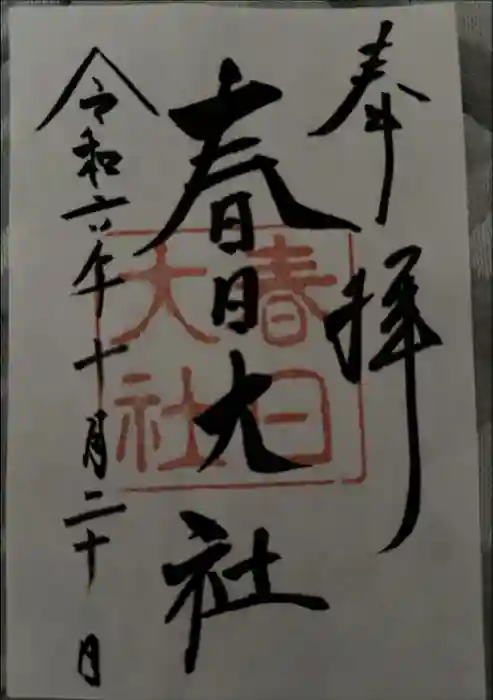 奉拝
春日大社
春日
大社
令和六年十月二十日